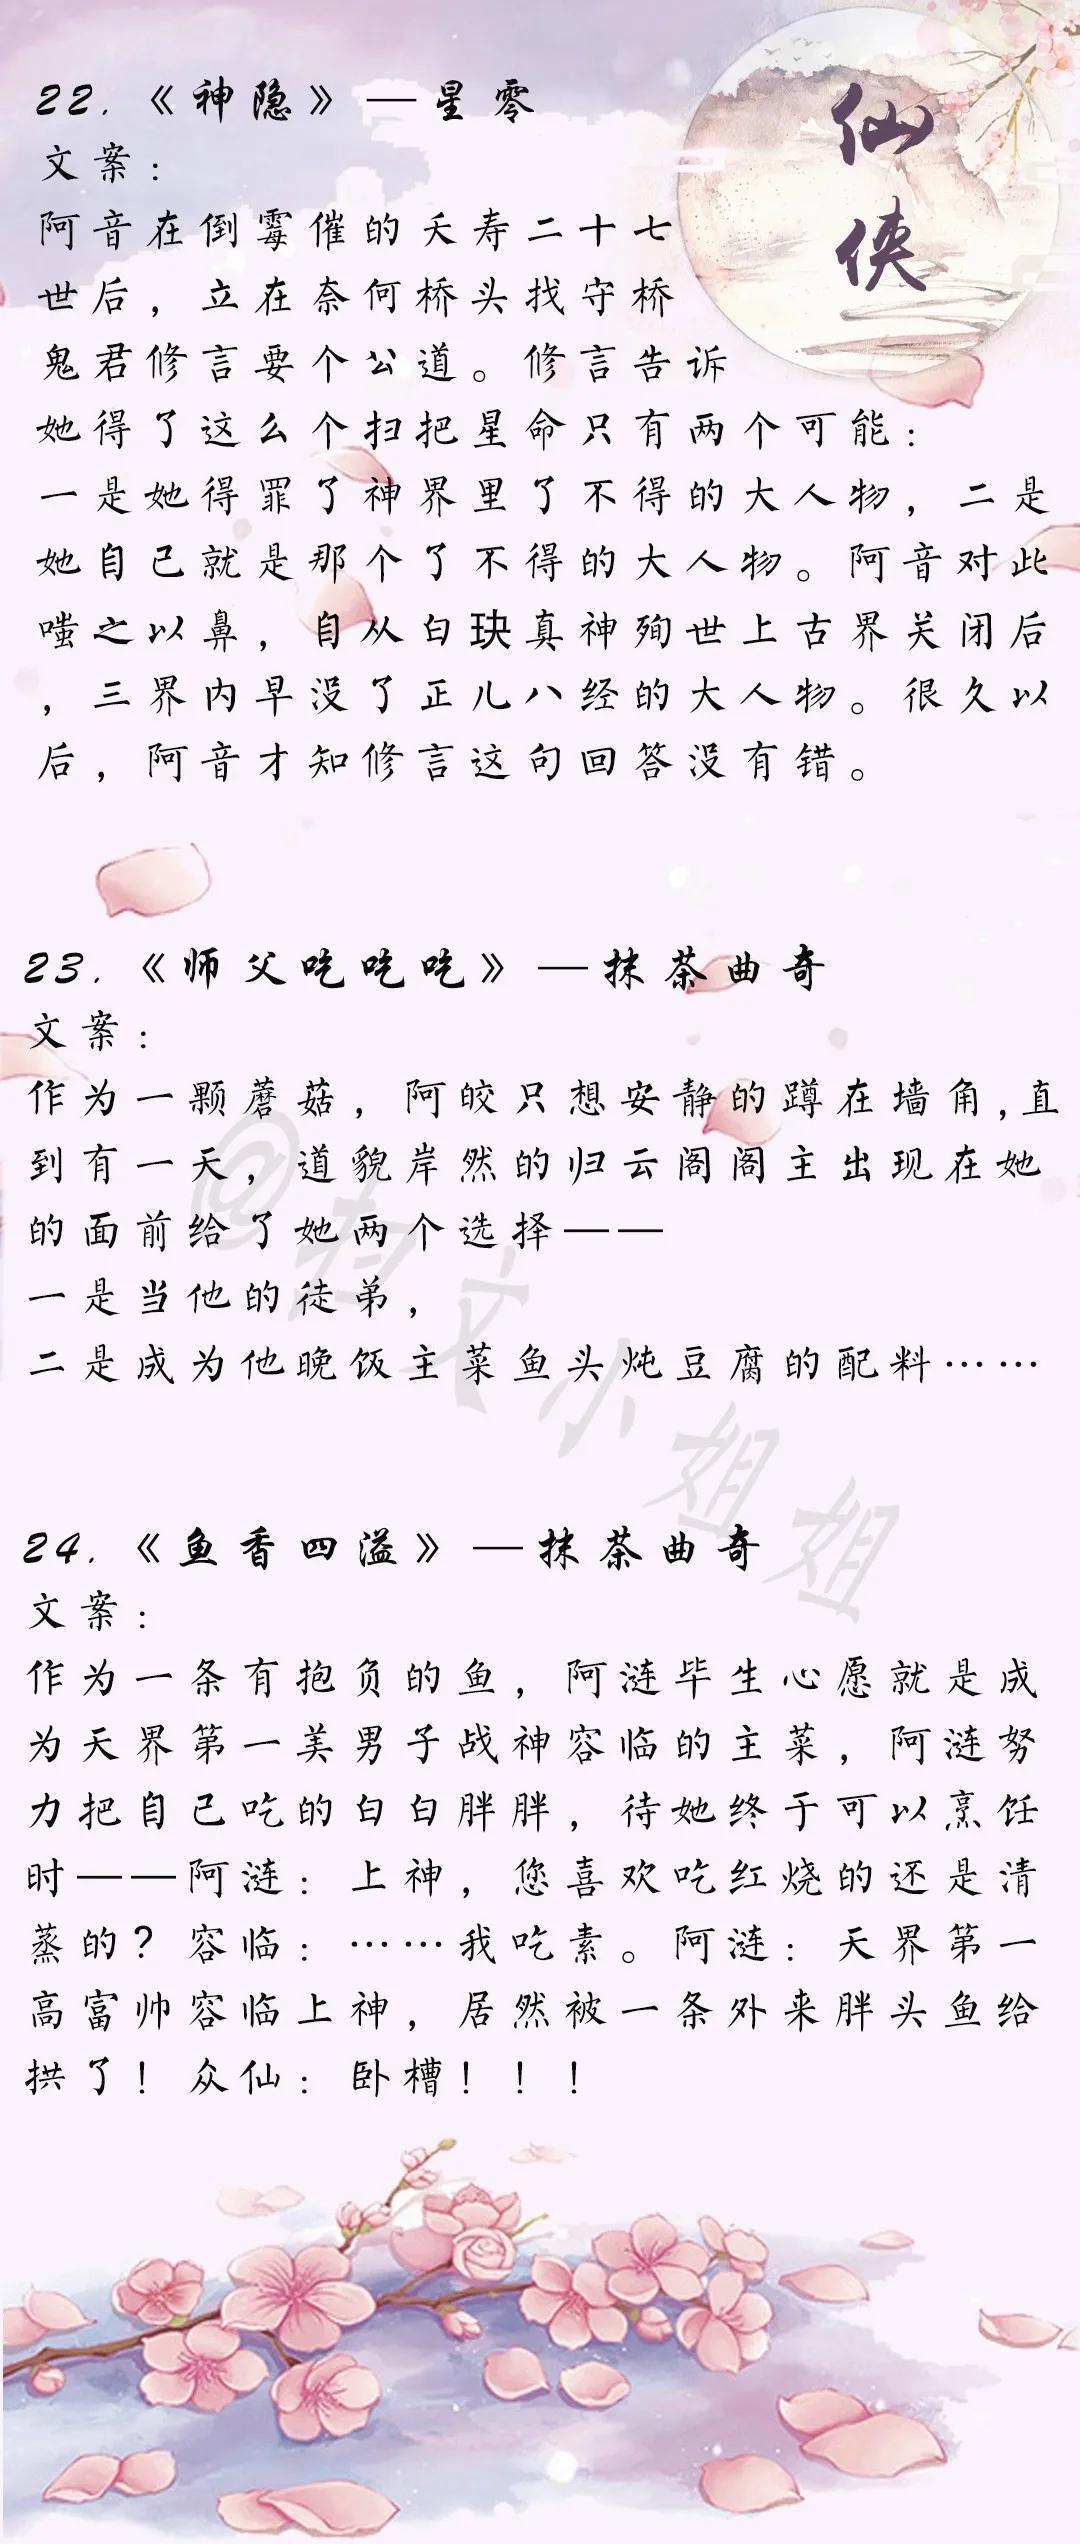 仙侠
22.《神隐》—星零
文案：
阿音在倒霉催的夭寿二十七
世后，立在奈何桥头找守桥
鬼君修言要个公道。修言告诉
她得了这么个扫把星命只有两个可能：
一是她得罪了神界里了不得的大人物，二是
她自己就是那个了不得的大人物。阿音对此
嗤之以鼻，自从白玦真神殉世上古界关闭后
，三界内早没了正儿八经的大人物。很久以
后，阿音才知修言这句回答没有错。
23.《师父吃吃吃》—抹茶曲奇
文案：
作为一颗蘑菇，阿皎只想安静的蹲在墙角,直
到有一天，道貌岸然的归云阁阁主出现在她
的面前给了她两个选择——
一是当他的徒弟，
二是成为他晚饭主菜鱼头炖豆腐的配料……
24.《鱼香四溢》—抹茶曲奇
文案：
作为一条有抱负的鱼，阿涟毕生心愿就是成
为天界第一美男子战神容临的主菜，阿涟努
力把自己吃的白白胖胖，待她终于可以烹饪
时——阿涟：上神，您喜欢吃红烧的还是清
蒸的？容临：……我吃素。阿涟：天界第一
高富帅容临上神，居然被一条外来胖头鱼给
拱了！众仙：卧槽！！！